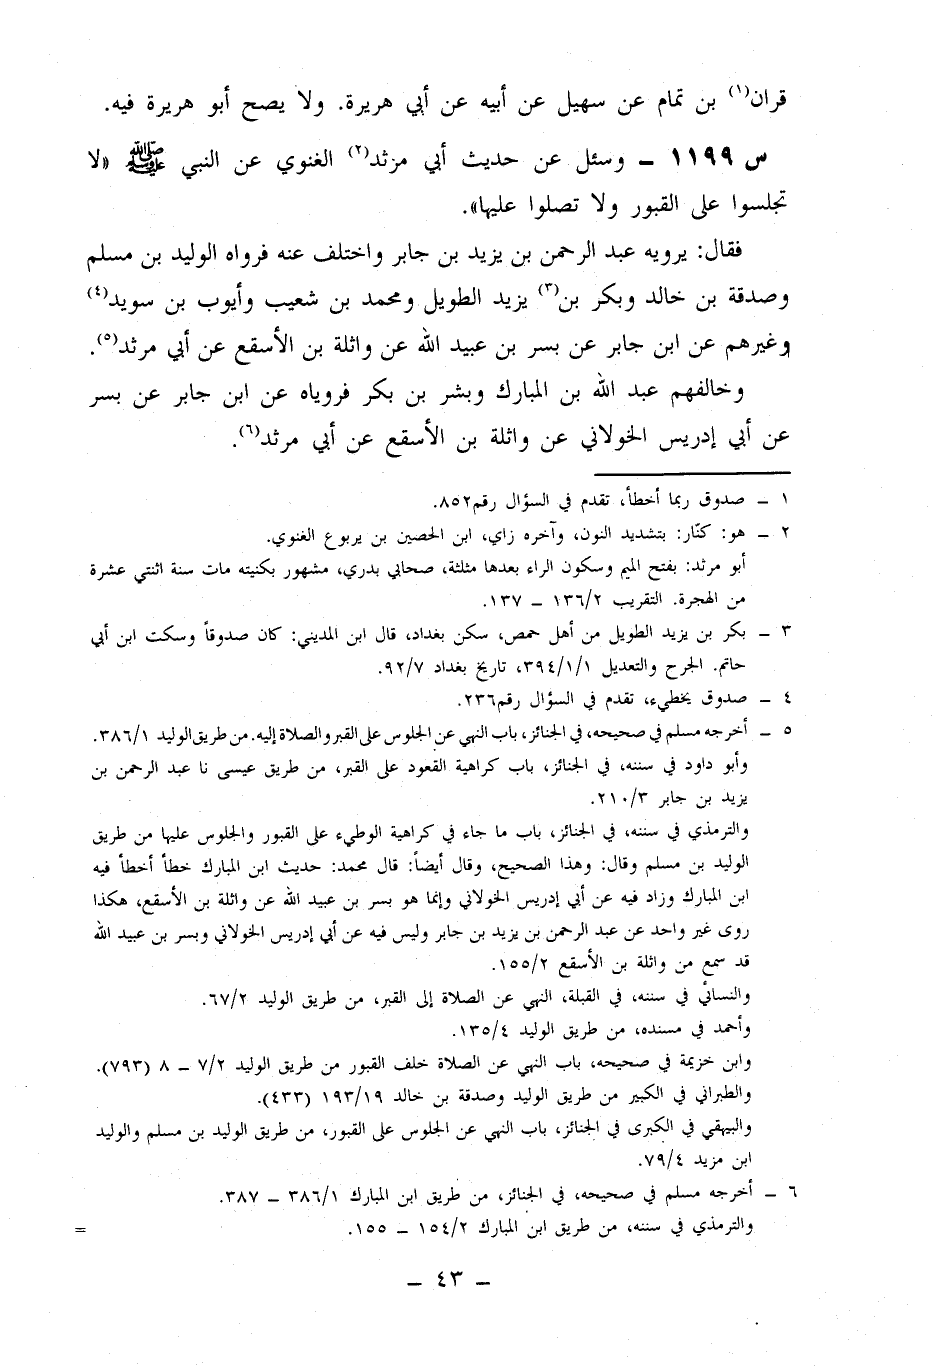 قران(١) بن تمام عن سهيل عن أبيه عن أبي هريرة. ولا يصح أبو هريرة فيه.
س ١١٩٩ ـ وسئل عن حديث أبي مرثد(٢) الغنوي عن النبي ﷺ «لا
تجلسوا على القبور ولا تصلوا عليها».
فقال: يرويه عبد الرحمن بن يزيد بن جابر واختلف عنه فرواه الوليد بن مسلم
وصدقة بن خالد وبكر بن(٣) يزيد الطويل ومحمد بن شعيب وأيوب بن سويد(٤)
وغيرهم عن ابن جابر عن بسر بن عبيد الله عن واثلة بن الأسقع عن أبي مرثد(٥).
وخالفهم عبد الله بن المبارك وبشر بن بكر فروياه عن ابن جابر عن بسر
عن أبي إدريس الخولاني عن واثلة بن الأسقع عن أبي مرثد(٦).
١ ـ صدوق ربما أخطأ، تقدم في السؤال رقم٨٥٢.
٢ ـ هو: كنّار: بتشديد النون، وآخره زاي، ابن الحصين بن يربوع الغنوي.
أبو مرثد: بفتح الميم وسكون الراء بعدها مثلثة، صحابي بدري، مشهور بكنيته مات سنة اثنتي عشرة
من الهجرة. التقريب ١٣٦/٢ ـ ١٣٧.
٣ ـ بكر بن يزيد الطويل من أهل حمص، سكن بغداد، قال ابن المديني: كان صدوقاً وسكت ابن أبي
حاتم. الجرح والتعديل ٣٩٤/١/١، تاريخ بغداد ٩٢/٧.
٤ ـ صدوق يخطيء، تقدم في السؤال رقم٢٣٦.
٥ ـ أخرجه مسلم في صحيحه، في الجنائز، باب النهي عن الجلوس على القبر والصلاة إليه. من طريق الوليد ٣٨٦/١.
وأبو داود في سننه، في الجنائز، باب كراهية القعود على القبر، من طريق عيسى نا عبد الرحمن بن
يزيد بن جابر ٢١٠/٣.
والترمذي في سننه، في الجنائز، باب ما جاء في كراهية الوطيء على القبور والجلوس عليها من طريق
الوليد بن مسلم وقال: وهذا الصحيح، وقال أيضاً: قال محمد: حديث ابن المبارك خطأ أخطأ فيه
ابن المبارك وزاد فيه عن أبي إدريس الخولاني وإنما هو بسر بن عبيد الله عن واثلة بن الأسقع، هكذا
روى غير واحد عن عبد الرحمن بن يزيد بن جابر وليس فيه عن أبي إدريس الخولاني وبسر بن عبيد الله
قد سمع من واثلة بن الأسقع ١٥٥/٢.
والنسائي في سننه، في القبلة، النهي عن الصلاة إلى القبر، من طريق الوليد ٦٧/٢.
وأحمد في مسنده، من طريق الوليد ١٣٥/٤.
وابن خزيمة في صحيحه، باب النهي عن الصلاة خلف القبور من طريق الوليد ٧/٢ ـ ٨ (٧٩٣).
والطبراني في الكبير من طريق الوليد وصدقة بن خالد ١٩٣/١٩ (٤٣٣).
والبيهقي في الكبرى في الجنائز، باب النهي عن الجلوس على القبور، من طريق الوليد بن مسلم والوليد
ابن مزيد ٧٩/٤.
٦ ـ أخرجه مسلم في صحيحه، في الجنائز، من طريق ابن المبارك ٣٨٦/١ ـ ٣٨٧.
والترمذي في سننه، من طريق ابن المبارك ١٥٤/٢ ـ ١٥٥. =
ـ ٤٣ ـ